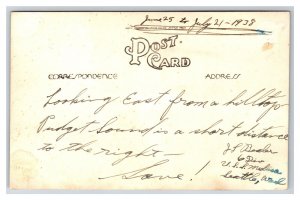 June 25 to July 21-1938
POST
CARD
CORRESPONDENCE
ADDRESS
Looking East from a hilltop
Pudget Sound is a short distance
to the right -
Love!
J.L.
6 Div
U.S.S.
Seattle, Wash